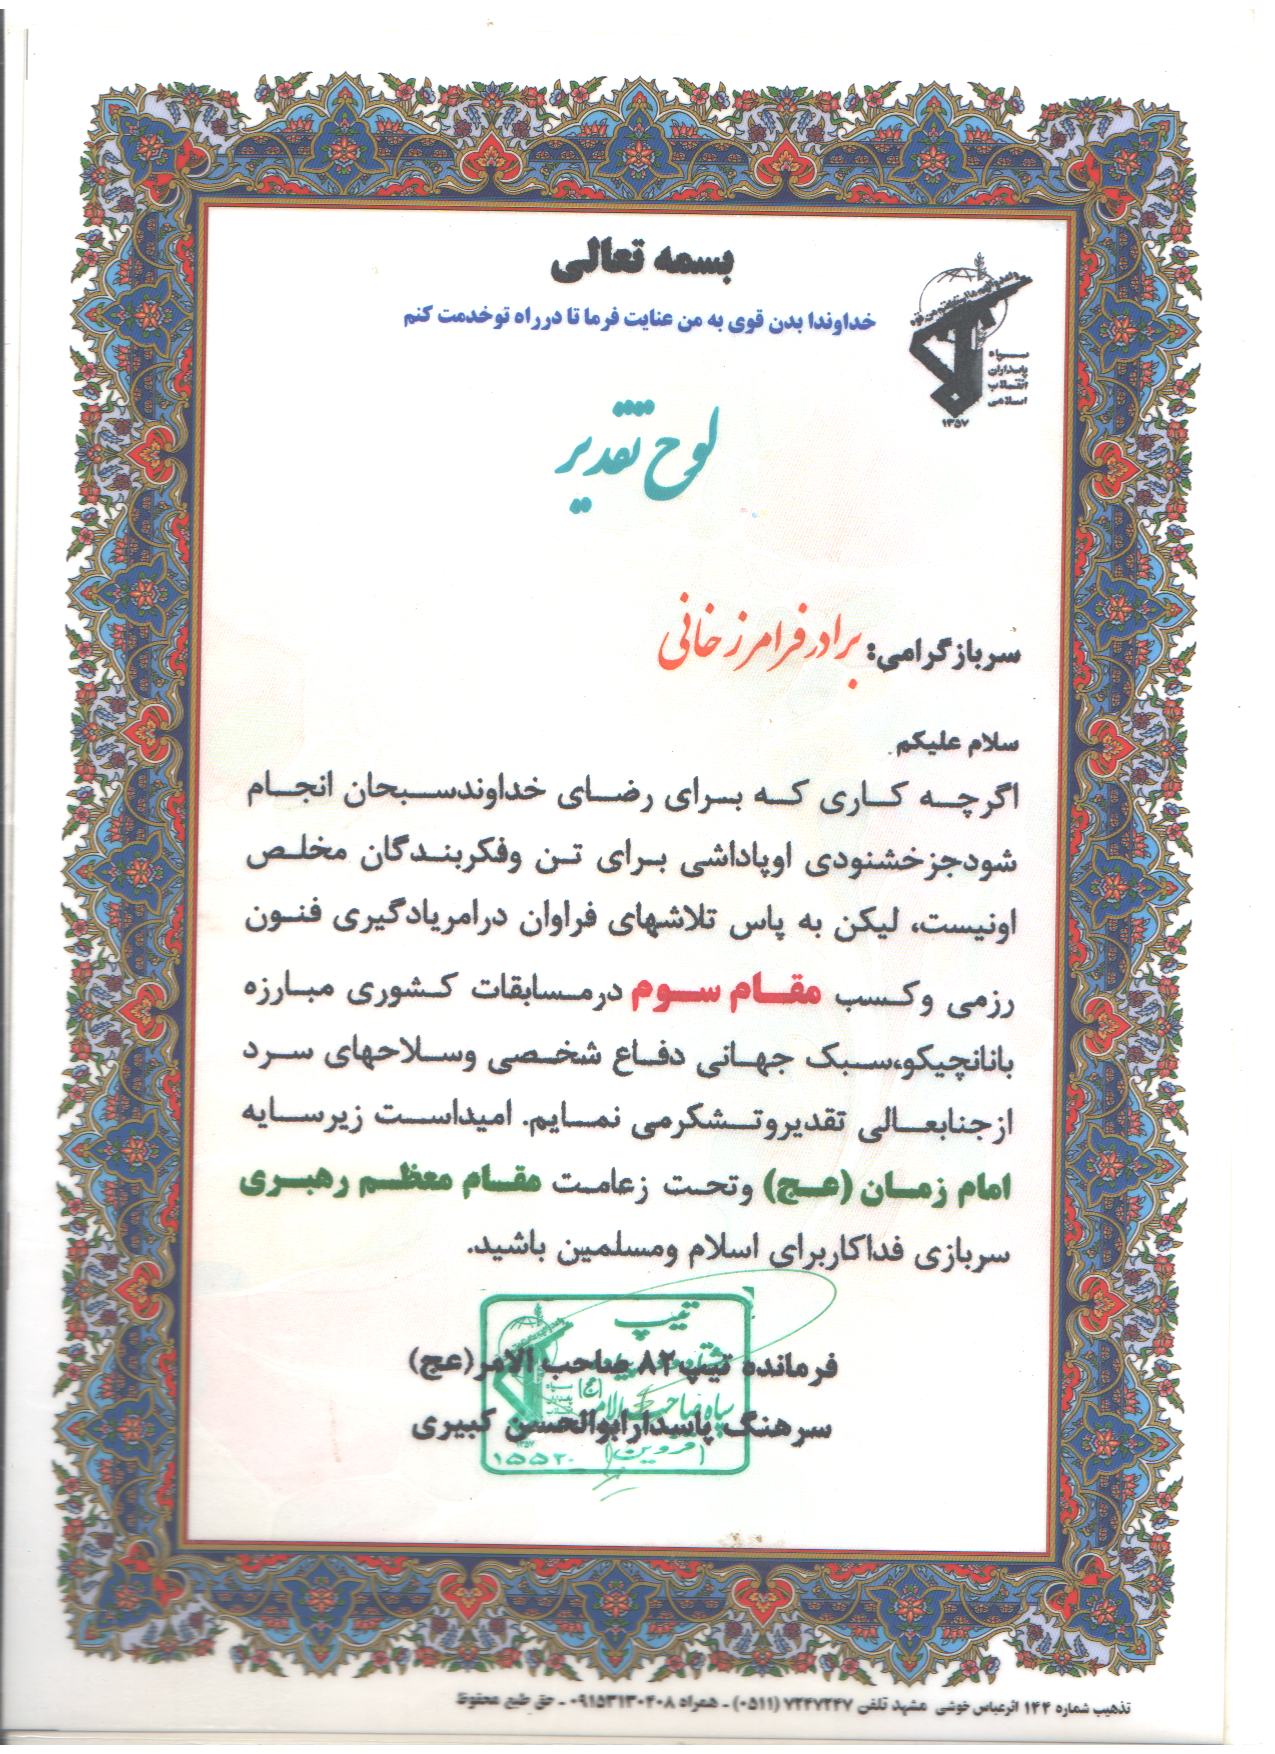 بسمه تعالی
خداوندا بدن قوی به من عنایت فرما تا درراه توخدمت کنم
سپاه
پاسداران
انقلاب
اسلامی
۱۳۵۷
لوح تقدیر
سربازگرامی: برادرفرامرزخانی
سلام علیکم
اگرچه کاری که برای رضای خداوندسبحان انجام
شودجزخشنودی اوپاداشی برای تن وفکربندگان مخلص
اونیست، لیکن به پاس تلاشهای فراوان درامریادگیری فنون
رزمی وکسب مقام سوم درمسابقات کشوری مبارزه
بانانچیکو،سبک جهانی دفاع شخصی وسلاحهای سرد
ازجنابعالی تقدیروتشکرمی نمایم. امیداست زیرسایه
امام زمان (عج) وتحت زعامت مقام معظم رهبری
سربازی فداکاربرای اسلام ومسلمین باشید.
تیپ
فرمانده تیپ ۸۲ صاحب الامر(عج)
سپاه صاحب الامر (عج)
سرهنگ پاسدارابوالحسن کبیری
(قزوین)
۱۵۵۲۰
تذهیب شماره ۱۴۴ اثرعباس خوشی مشهد تلفن ۷۲۴۷۲۴۷ (۰۵۱۱) - همراه ۰۹۱۵۳۱۳۰۴۰۸ - حق طبع محفوظ